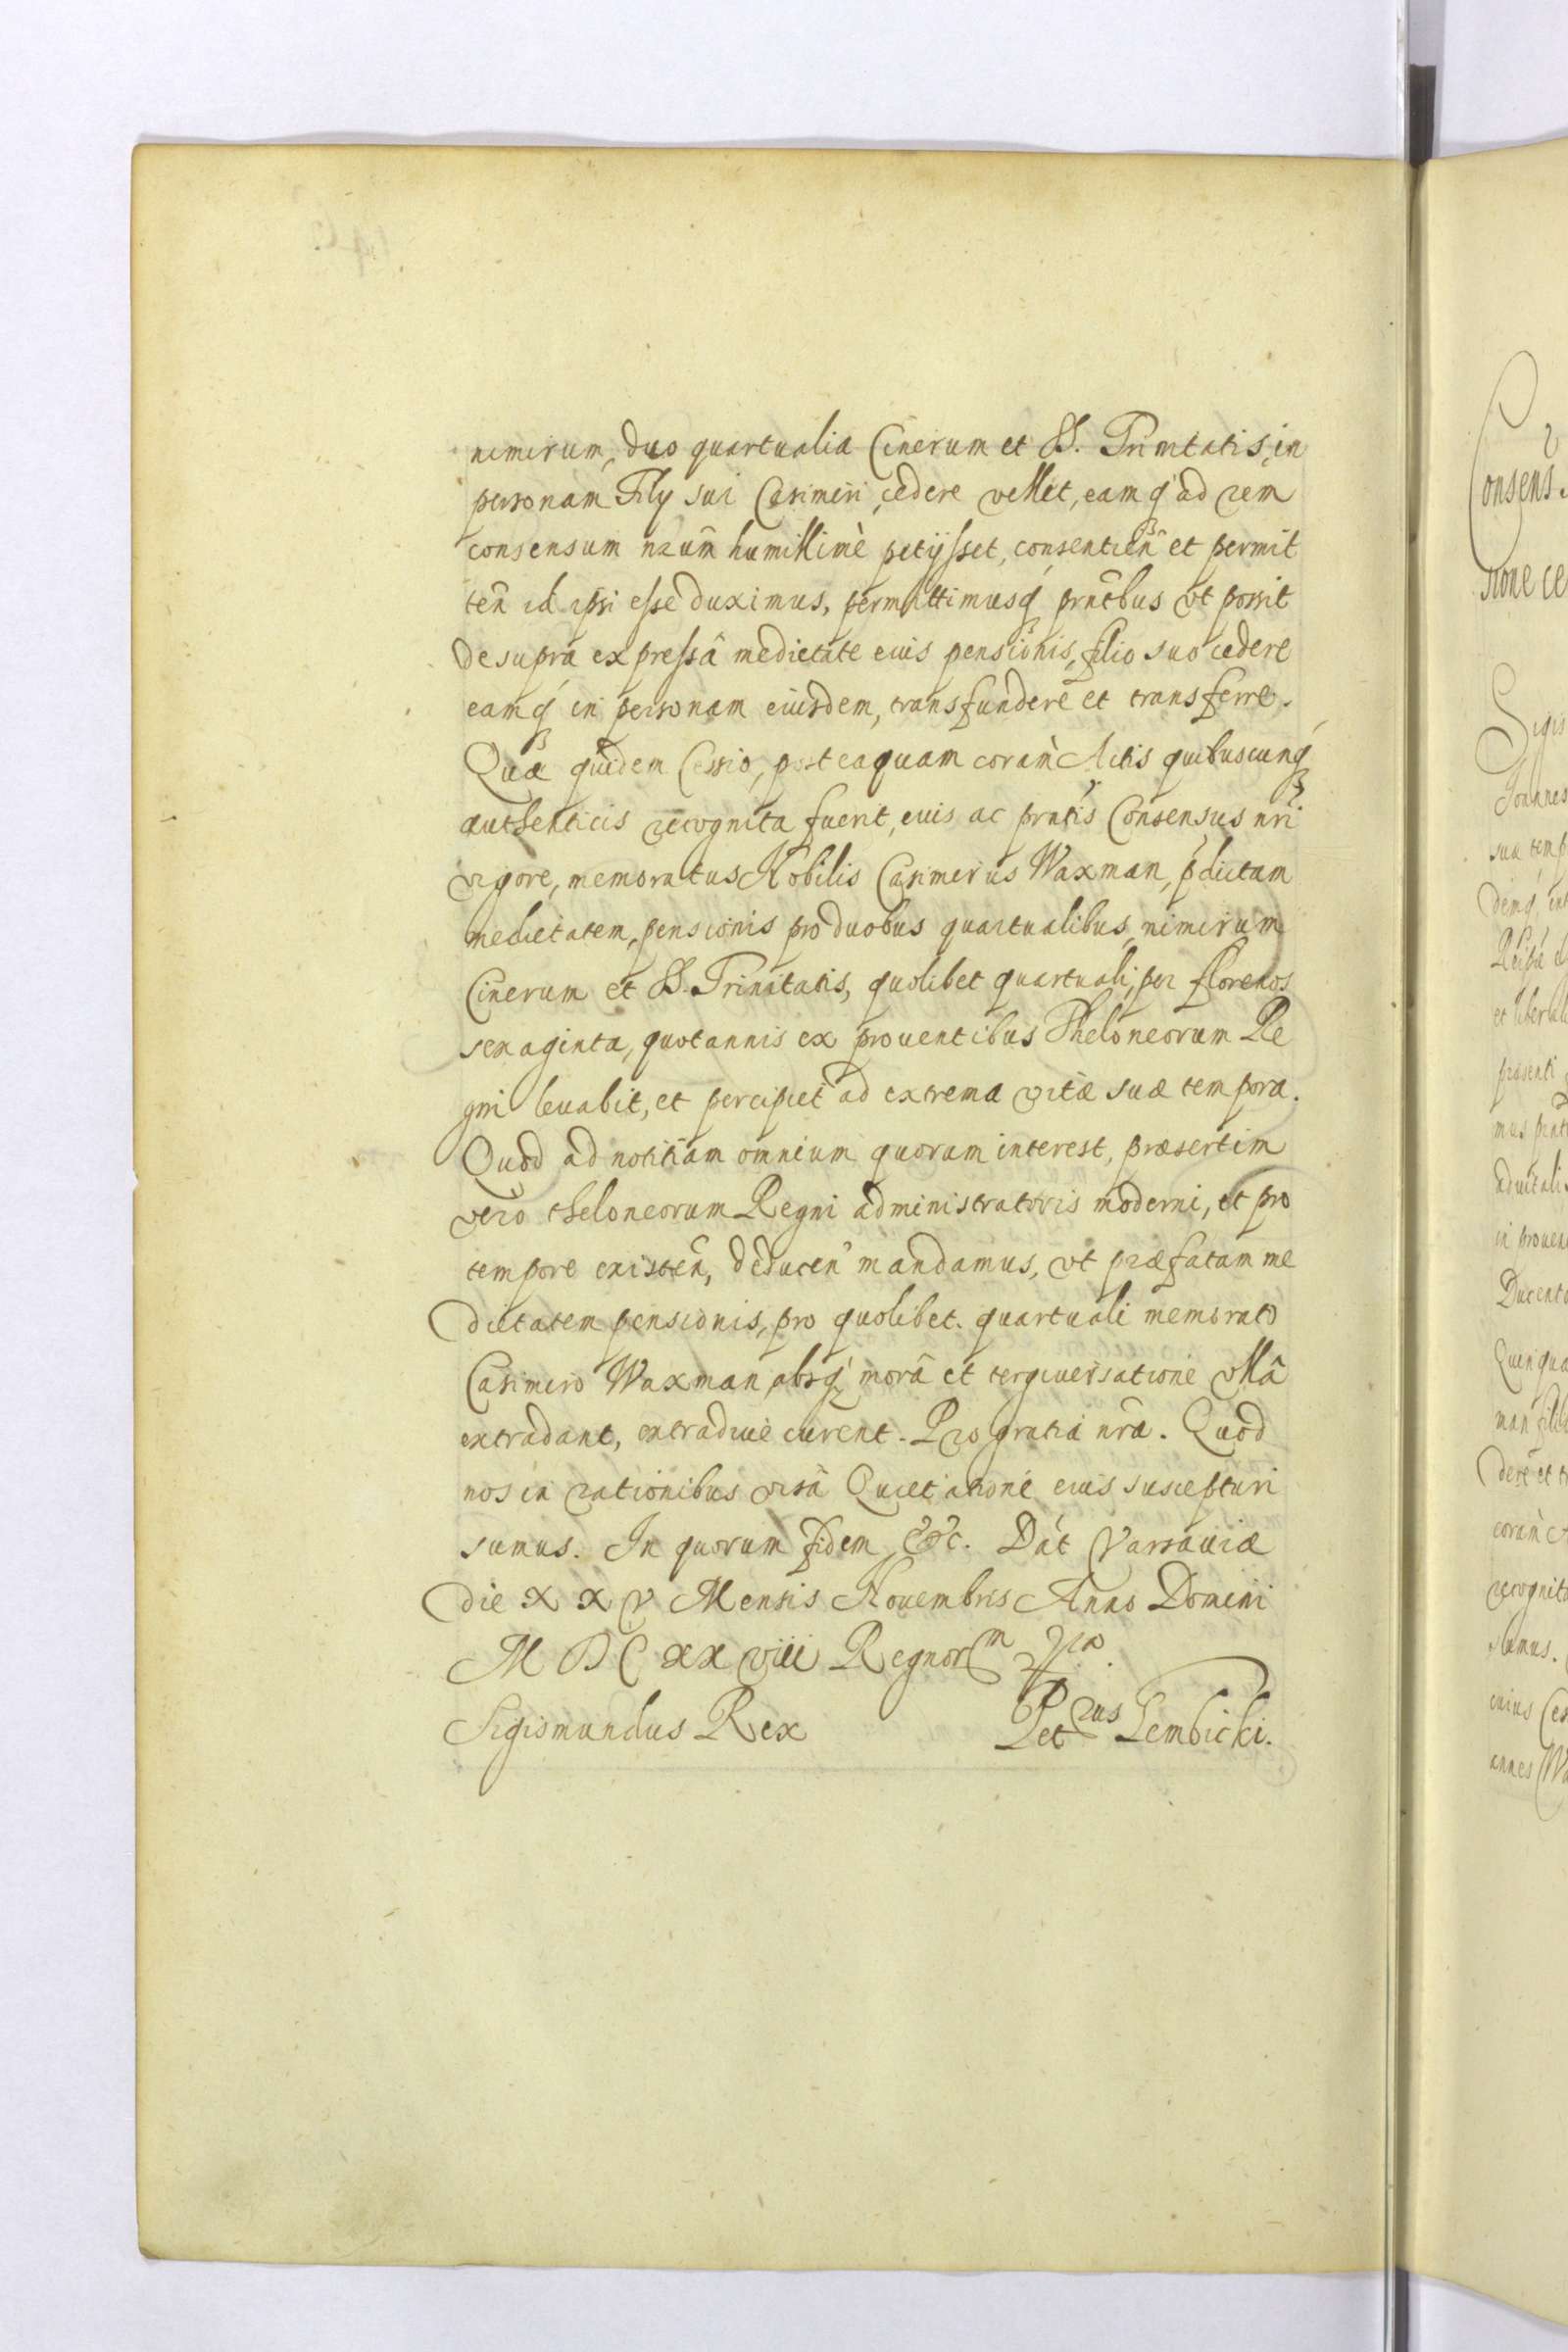 nimirum, duo quartualia Cinerum et S. Trinitatis, in
personam Filij sui Casimiri, cedere vellet, eamq́ ad rem
consensum nrũm humillimè petijsset, consentieñ et permit
teñ id ipsi esse duximus, permittimusq́ prñtibus vt possit
de supra expressâ medietate eius pensionis, filio suo cedere
eamq́ in personam eiusdem, transfundere et transferre.
Quæ quidem Cessio, posteaquam coram Actis quibuscunq́
authenticis recognita fuerit, eius ac prñtis Consensus nri
vigore, memoratus Nobilis Casimirus Waxman, p̃dictam
medietatem, pensionis pro duobus quartualibus, nimirum
Cinerum et S. Trinitatis, quolibet quartuali, per florenos
sexaginta, quotannis ex prouentibus Theloneorum Re
gni leuabit, et percipiet ad extrema vitæ suæ tempora.
Quod ad notitiam omnium quorum interest, præsertim
verò theloneorum Regni administratoris moderni, et pro
tempore existeñ, deduceñ mandamus, vt præfatam me
dietatem pensionis, pro quolibet quartuali memorato
Casimiro Waxman absq́ morâ et tergiuersatione vllâ
extradant, extradiue curent. Pro gratia nrã. Quod
nos in rationibus visâ Quietatione eius suscepturi
sumus. In quorum fidem, &c. Dat Varsauiæ
die XXV Mensis Nouembris Anno Domini
MDCXXVIII Regnorm
Sigismundus Rex Petrus Gembicki.
Consens
sione ce
Sigis
Joannes